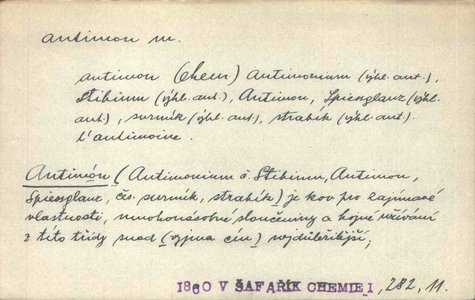 antimon m.
antimon (Chem) Antimonium (výhl. ant.),
Stibium (výhl. ant.), Antimon, Spiessglanz (výhl.
ant.), surmík (výhl. ant.), strabík (výhl. ant.).
l'antimoine.
Antimón (Antimonium č. Stibium, Antimon,
Spiessglanz, čes. surmík, strabík) je kov pro zajímavé
vlastnosti, mnohonásobné sloučeniny a hojné užívání
z této třídy snad (vyjma cín) nejdůležitější,
1860 V ŠAFAŘÍK CHEMIE I, 282, 11.